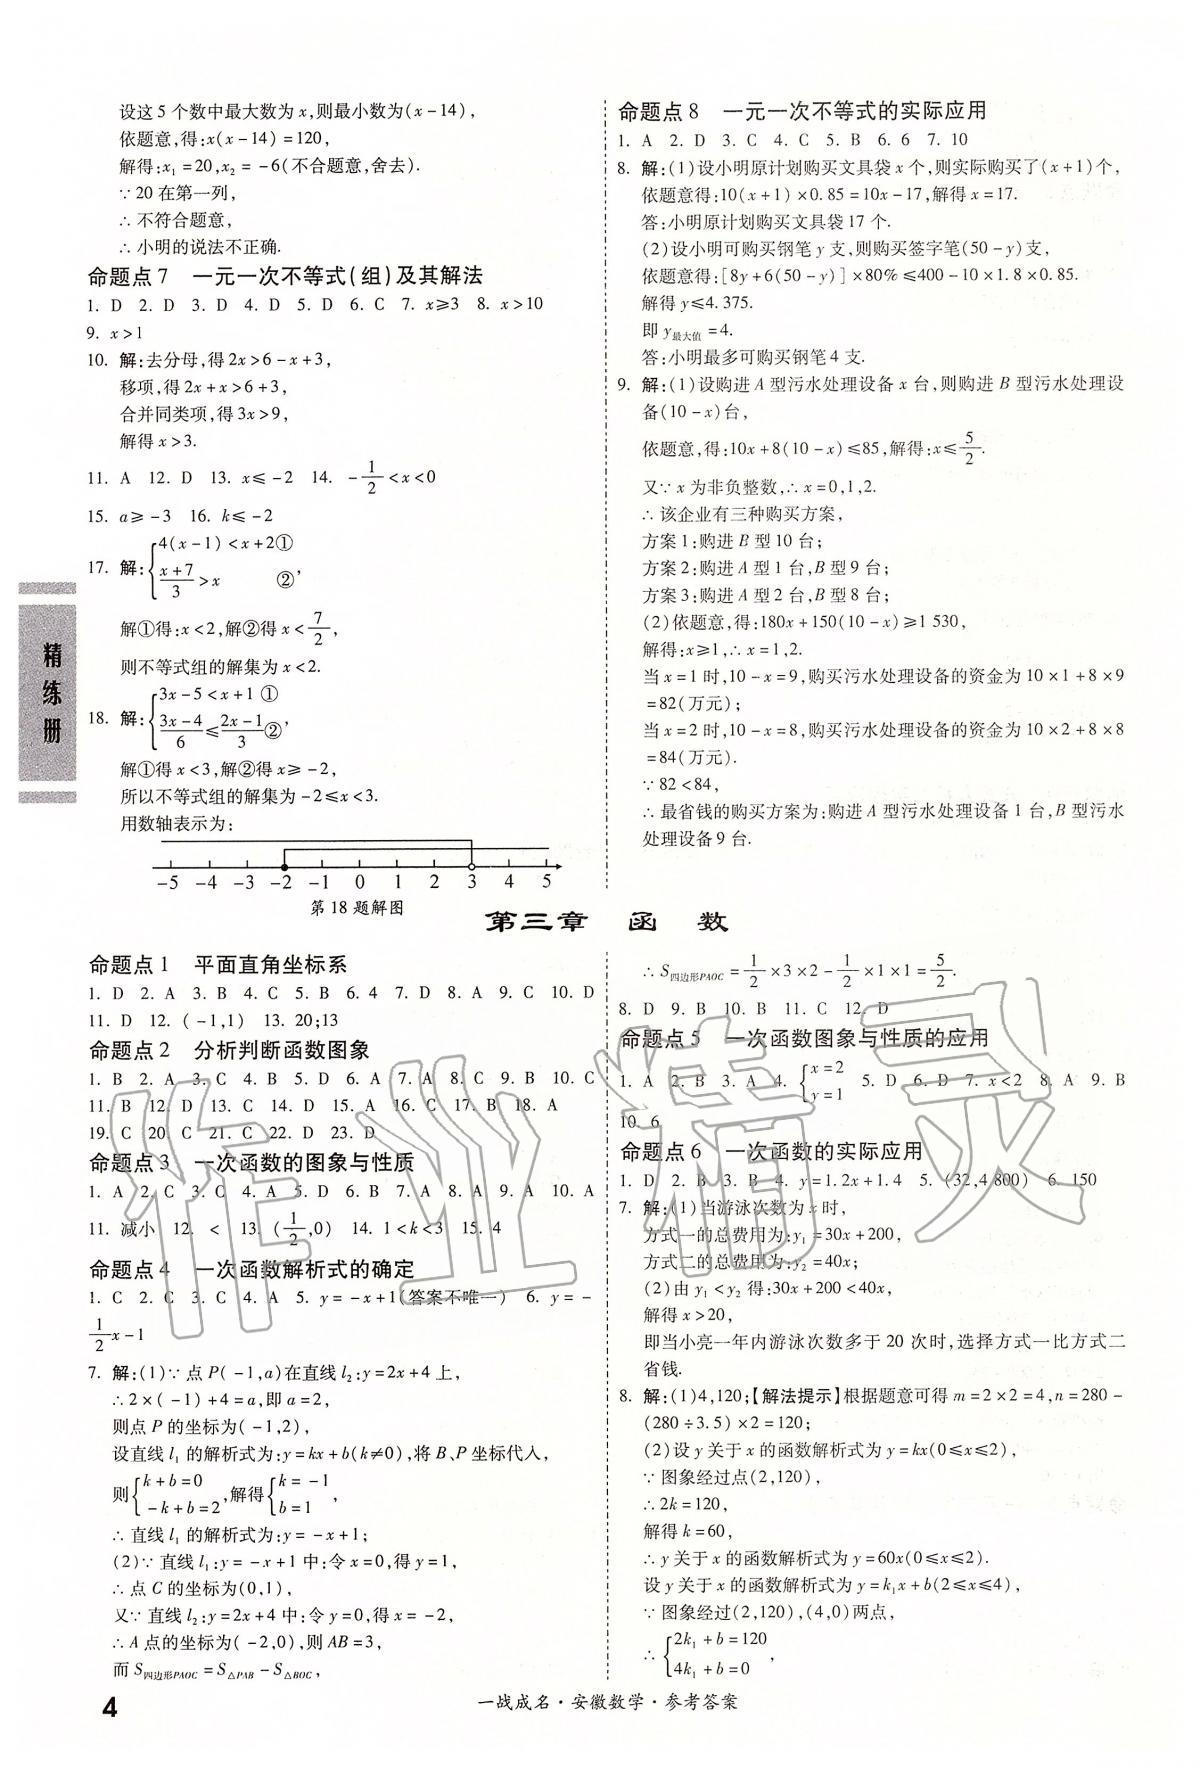 设这 5 个数中最大数为 x,则最小数为(x-14),
依题意,得:x(x-14)=120,
解得:x₁=20,x₂=-6(不合题意,舍去).
∵20 在第一列,
∴不符合题意,
∴小明的说法不正确.
命题点 7 一元一次不等式(组)及其解法
1. D 2. D 3. D 4. D 5. D 6. C 7. x≥3 8. x>10
9. x>1
10. 解:去分母,得 2x>6-x+3,
移项,得 2x+x>6+3,
合并同类项,得 3x>9,
解得 x>3.
11. A 12. D 13. x≤-2 14. -1/2<x<0
15. a≥-3 16. k≤-2
17. 解:{4(x-1)<x+2①
(x+7)/3>x ②,
解①得:x<2,解②得 x<7/2,
则不等式组的解集为 x<2.
18. 解:{3x-5<x+1 ①
(3x-4)/6≤(2x-1)/3②,
解①得 x<3,解②得 x≥-2,
所以不等式组的解集为-2≤x<3.
用数轴表示为:
-5 -4 -3 -2 -1 0 1 2 3 4 5
第 18 题解图
命题点 8 一元一次不等式的实际应用
1. A 2. D 3. C 4. C 5. B 6. 6 7. 10
8. 解:(1)设小明原计划购买文具袋 x 个,则实际购买了(x+1)个,
依题意得:10(x+1)×0.85=10x-17,解得 x=17.
答:小明原计划购买文具袋 17 个.
(2)设小明可购买钢笔 y 支,则购买签字笔(50-y)支,
依题意得:[8y+6(50-y)]×80%≤400-10×1.8×0.85.
解得 y≤4.375.
即 y最大值=4.
答:小明最多可购买钢笔 4 支.
9. 解:(1)设购进 A 型污水处理设备 x 台,则购进 B 型污水处理设
备(10-x)台,
依题意,得:10x+8(10-x)≤85,解得:x≤5/2.
又∵x 为非负整数,∴x=0,1,2.
∴该企业有三种购买方案,
方案 1:购进 B 型 10 台;
方案 2:购进 A 型 1 台,B 型 9 台;
方案 3:购进 A 型 2 台,B 型 8 台;
(2)依题意,得:180x+150(10-x)≥1 530,
解得:x≥1,∴x=1,2.
当 x=1 时,10-x=9,购买污水处理设备的资金为 10×1+8×9
=82(万元);
当 x=2 时,10-x=8,购买污水处理设备的资金为 10×2+8×8
=84(万元).
∵82<84,
∴最省钱的购买方案为:购进 A 型污水处理设备 1 台,B 型污水
处理设备 9 台.
精练册
第三章 函 数
命题点 1 平面直角坐标系
1. D 2. A 3. B 4. C 5. B 6. 4 7. D 8. A 9. C 10. D
11. D 12. (-1,1) 13. 20;13
命题点 2 分析判断函数图象
1. B 2. A 3. C 4. B 5. D 6. A 7. A 8. C 9. B 10. C
11. B 12. D 13. C 14. D 15. A 16. C 17. B 18. A
19. C 20. C 21. C 22. D 23. D
命题点 3 一次函数的图象与性质
1. A 2. C 3. C 4. A 5. D 6. B 7. A 8. A 9. A 10. A
11. 减小 12. < 13. (1/2,0) 14. 1<k<3 15. 4
命题点 4 一次函数解析式的确定
1. C 2. C 3. C 4. A 5. y=-x+1(答案不唯一) 6. y=-
1/2x-1
7. 解:(1)∵点 P(-1,a)在直线 l₂:y=2x+4 上,
∴2×(-1)+4=a,即 a=2,
则点 P 的坐标为(-1,2),
设直线 l₁ 的解析式为:y=kx+b(k≠0),将 B、P 坐标代入,
则{k+b=0
-k+b=2,解得{k=-1
b=1,
∴直线 l₁ 的解析式为:y=-x+1;
(2)∵直线 l₁:y=-x+1 中:令 x=0,得 y=1,
∴点 C 的坐标为(0,1),
又∵直线 l₂:y=2x+4 中:令 y=0,得 x=-2,
∴A 点的坐标为(-2,0),则 AB=3,
而 S四边形PAOC=S△PAB-S△BOC,
∴S四边形PAOC=1/2×3×2-1/2×1×1=5/2.
8. D 9. B 10. B 11. C 12. D
命题点 5 一次函数图象与性质的应用
1. A 2. B 3. A 4. {x=2
y=1 5. D 6. D 7. x<2 8. A 9. B
10. 6
命题点 6 一次函数的实际应用
1. D 2. B 3. B 4. y=1.2x+1.4 5. (32,4 800) 6. 150
7. 解:(1)当游泳次数为 x 时,
方式一的总费用为:y₁=30x+200,
方式二的总费用为:y₂=40x;
(2)由 y₁<y₂ 得:30x+200<40x,
解得 x>20,
即当小亮一年内游泳次数多于 20 次时,选择方式一比方式二
省钱.
8. 解:(1)4,120;【解法提示】根据题意可得 m=2×2=4,n=280-
(280÷3.5)×2=120;
(2)设 y 关于 x 的函数解析式为 y=kx(0≤x≤2),
∵图象经过点(2,120),
∴2k=120,
解得 k=60,
∴y 关于 x 的函数解析式为 y=60x(0≤x≤2).
设 y 关于 x 的函数解析式为 y=k₁x+b(2≤x≤4),
∵图象经过(2,120),(4,0)两点,
∴{2k₁+b=120
4k₁+b=0,
4
一战成名·安徽数学·参考答案
作业精灵